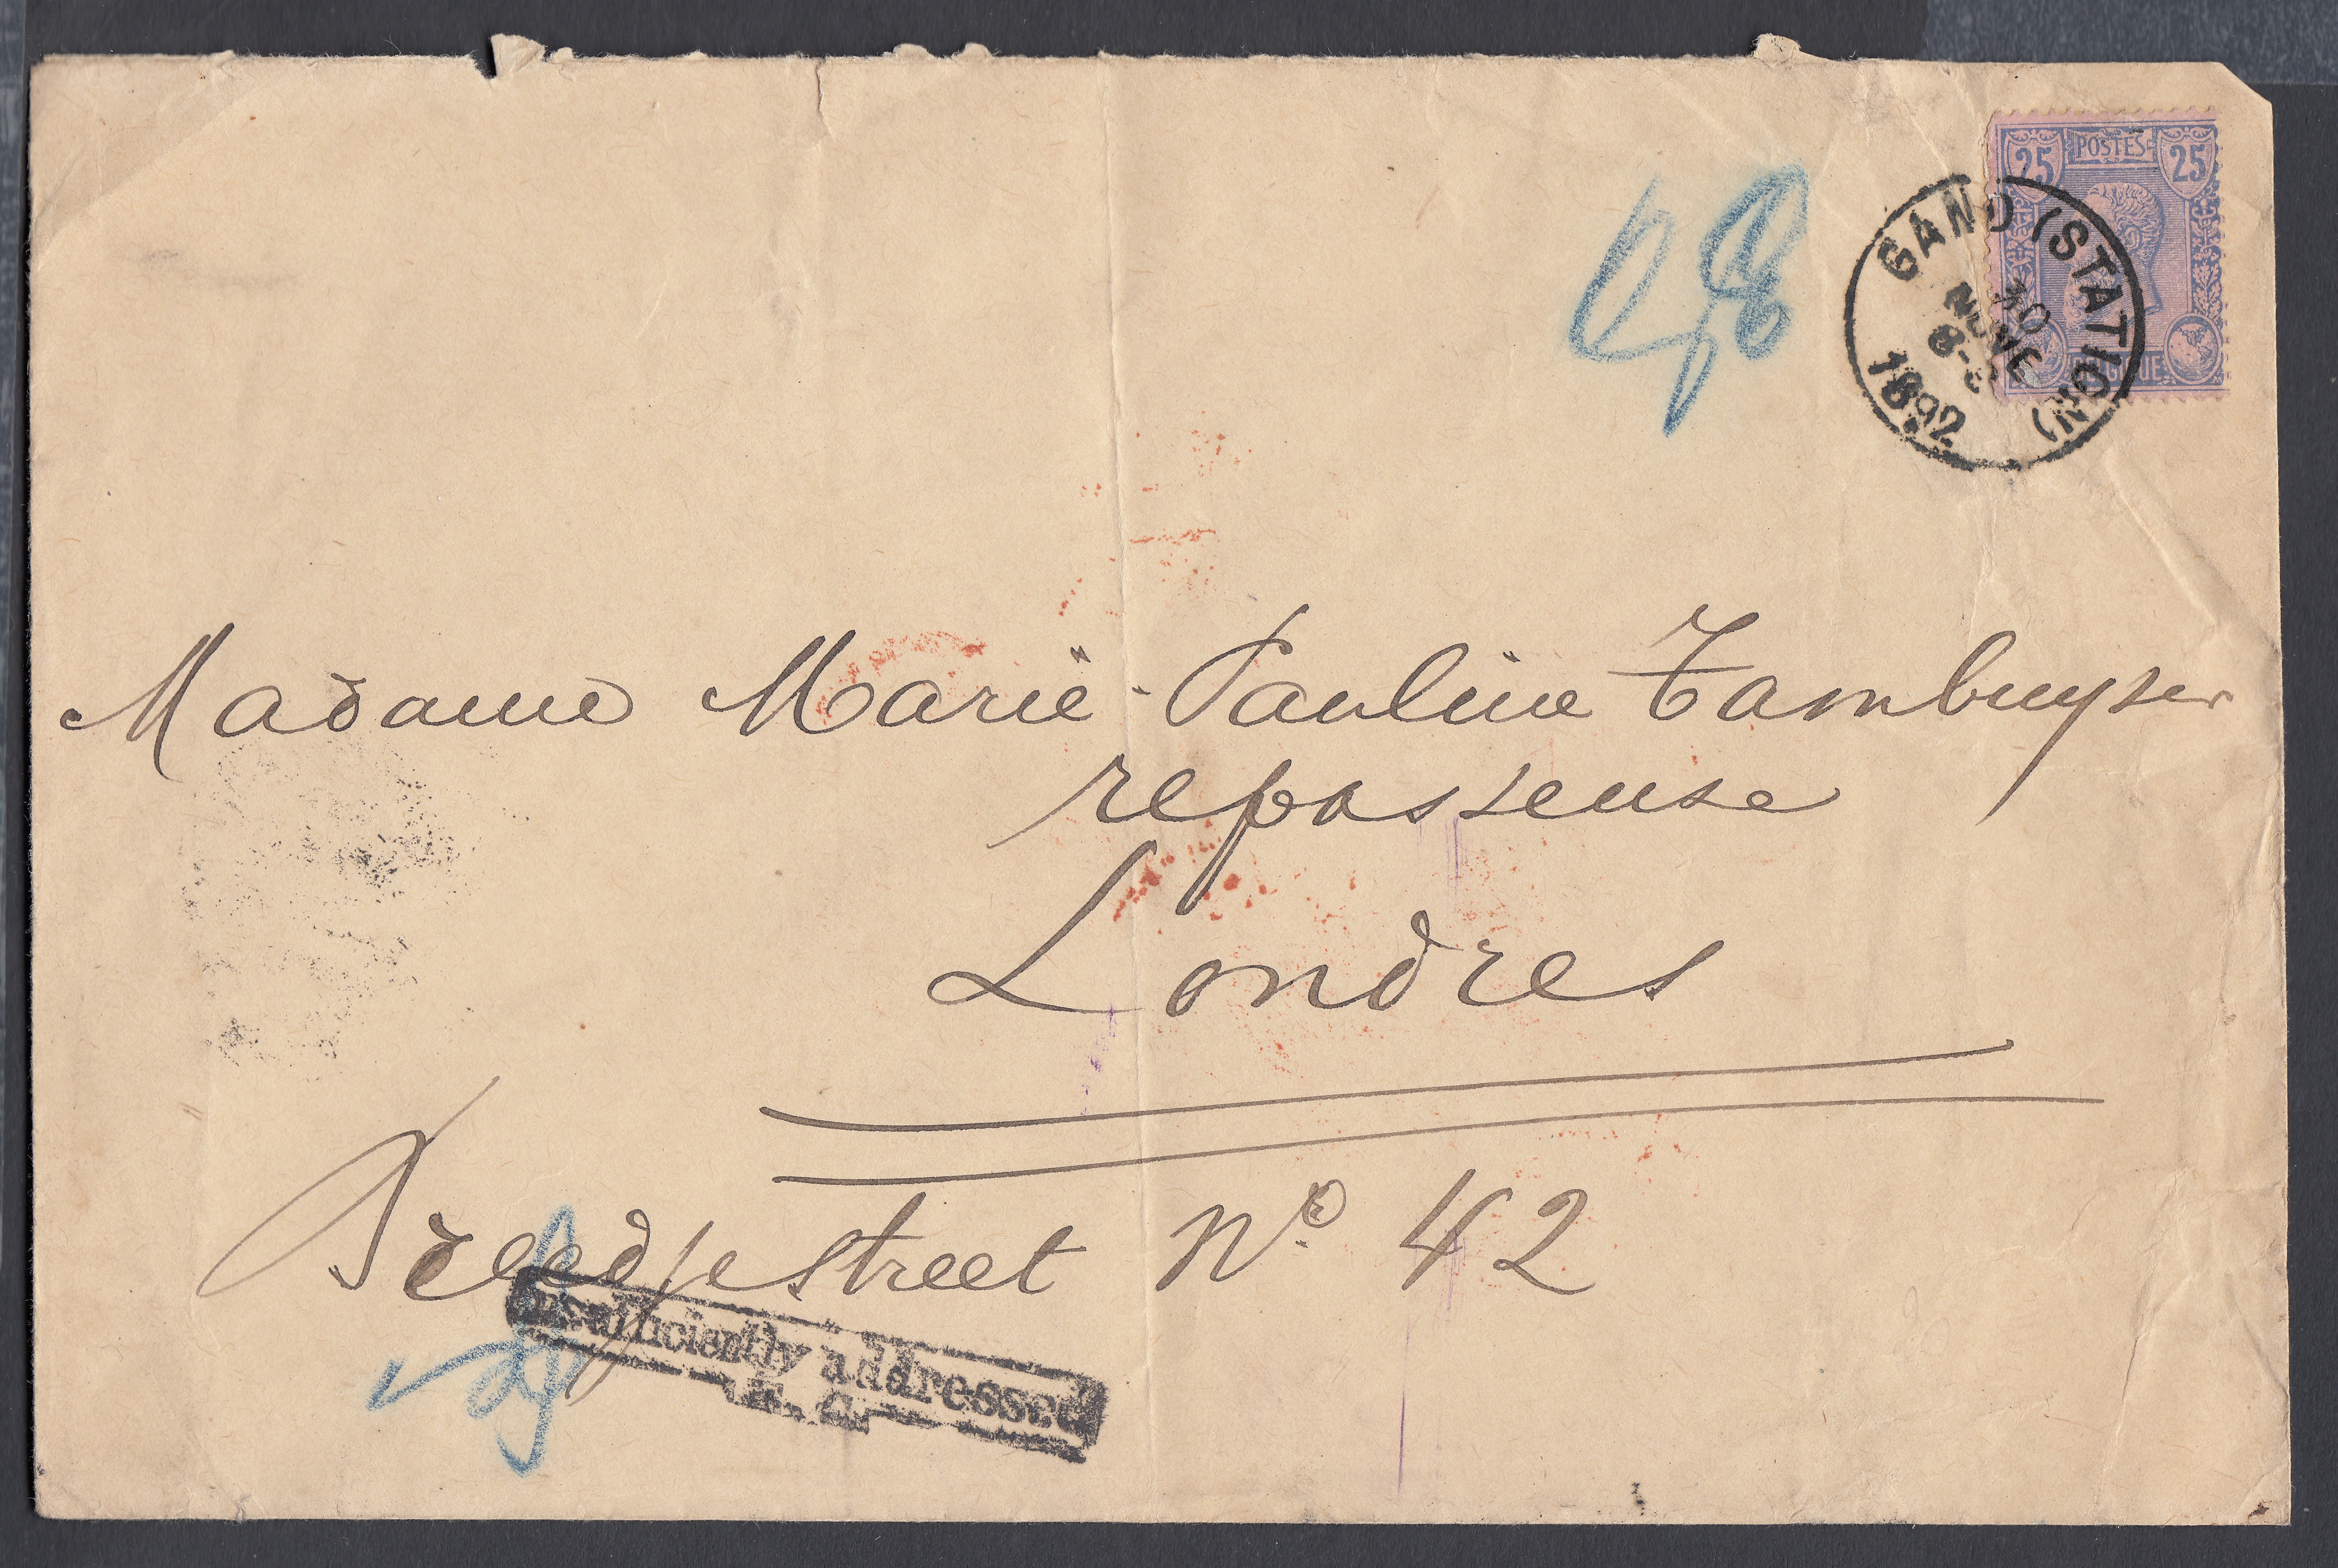 25 POSTES 25
BELGIQUE
GAND (STATION)
10
NOVE
8-
1892
Madame Marie-Pauline Tambuyser
repasseuse
Londres
street Nº 42
Insufficiently addressed